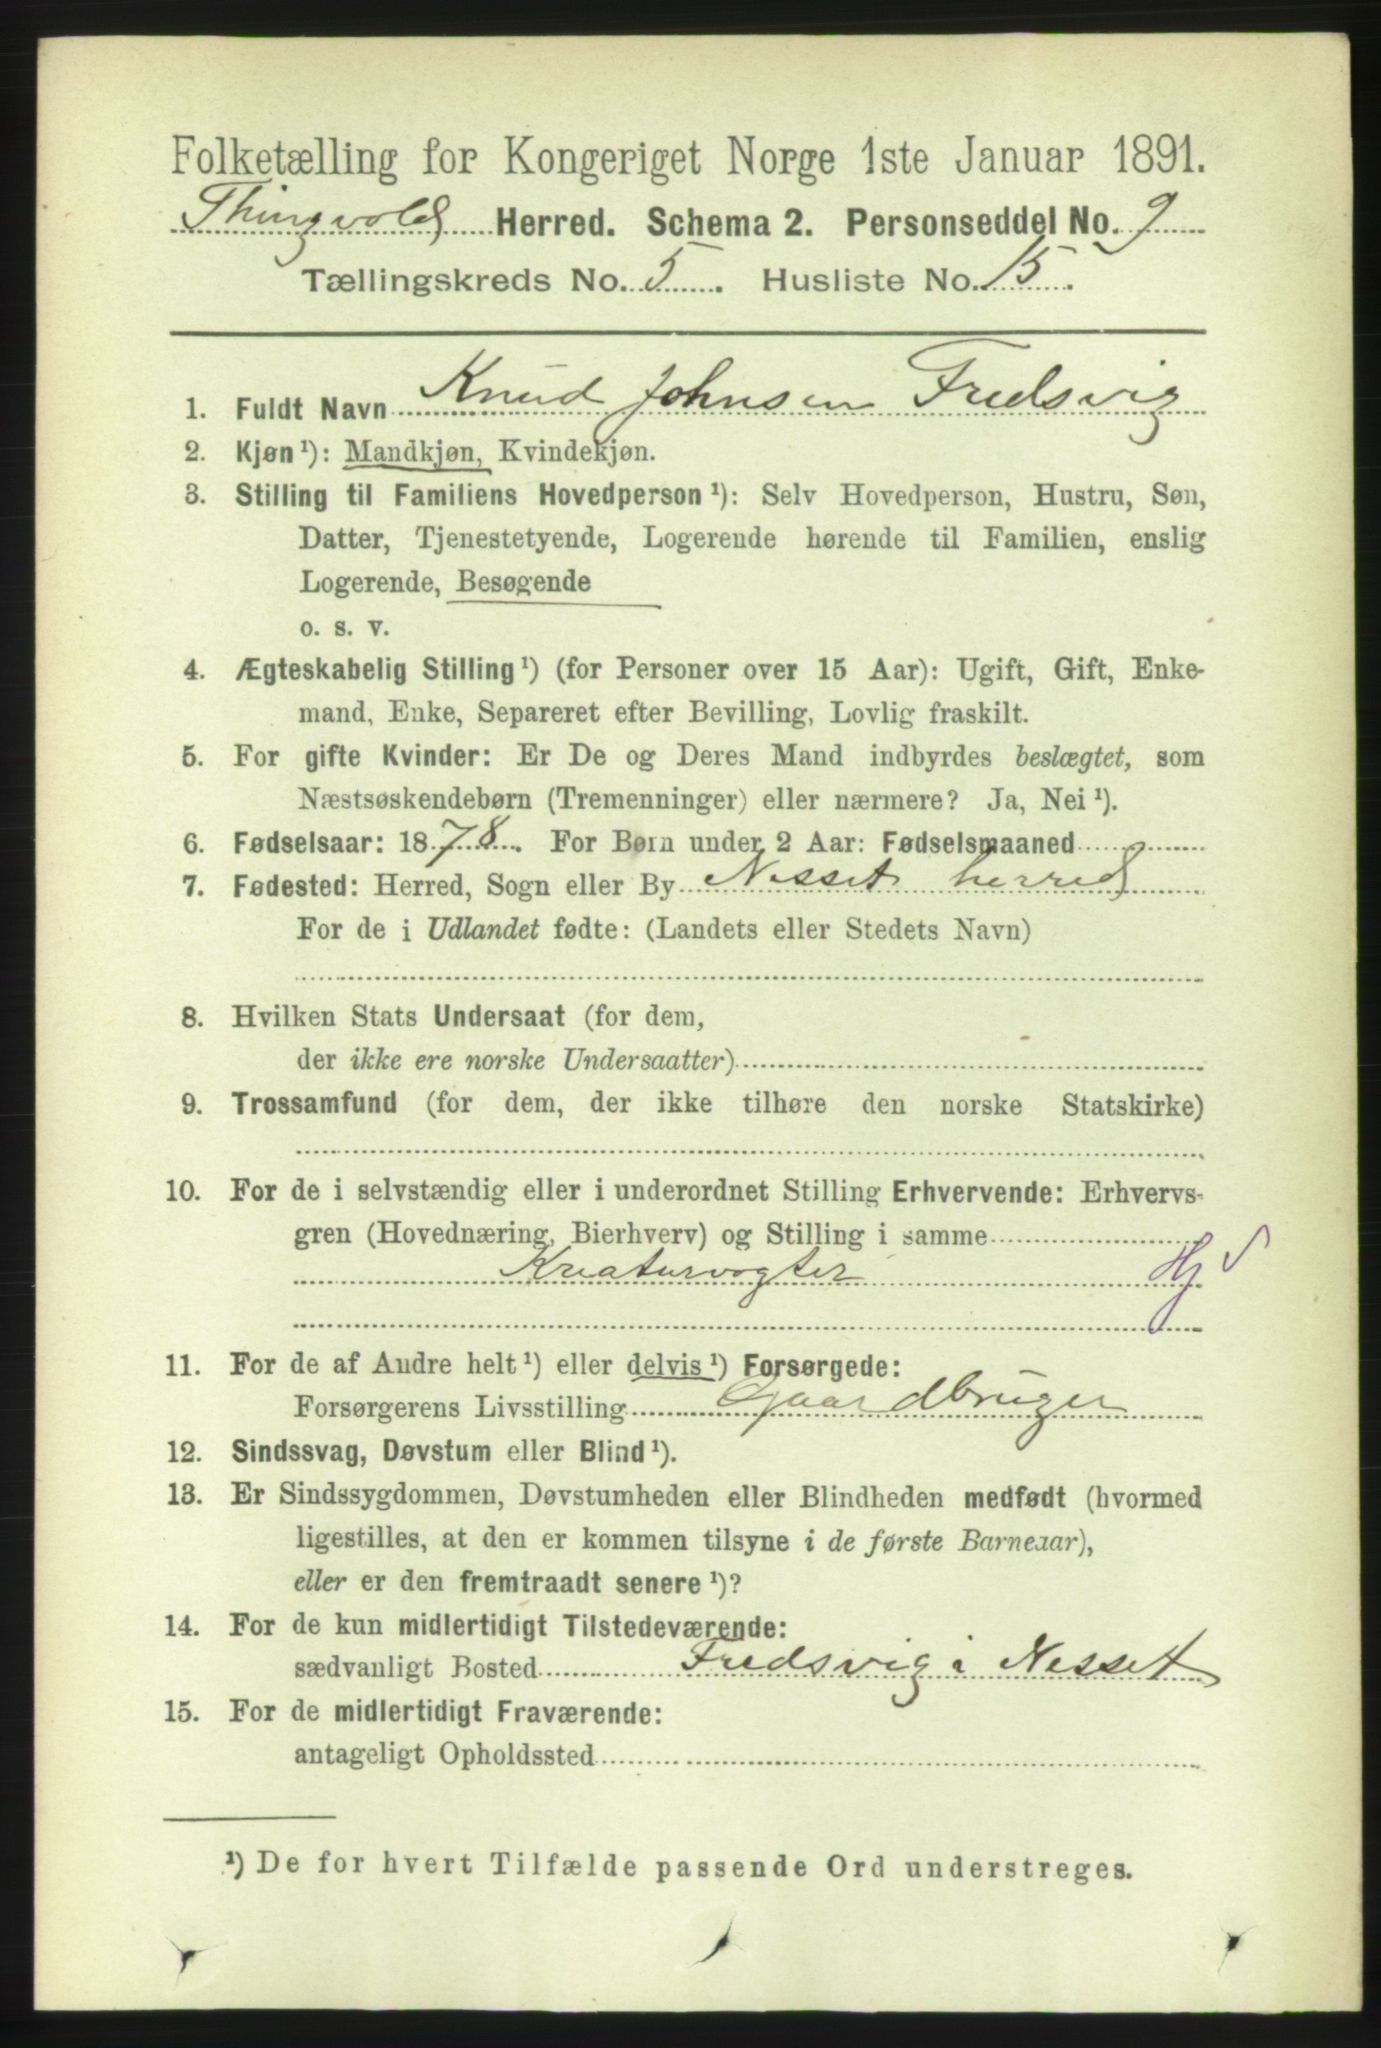 Folketælling for Kongeriget Norge 1ste Januar 1891.
Thingvold Herred. Schema 2. Personseddel No. 9
Tællingskreds No. 5. Husliste No. 15.
1. Fuldt Navn Knud Johnsen Fredsvig
2. Kjøn ¹): Mandkjøn, Kvindekjøn.
3. Stilling til Familiens Hovedperson ¹): Selv Hovedperson, Hustru, Søn,
Datter, Tjenestetyende, Logerende hørende til Familien, enslig
Logerende, Besøgende
o. s. v.
4. Ægteskabelig Stilling ¹) (for Personer over 15 Aar): Ugift, Gift, Enke-
mand, Enke, Separeret efter Bevilling, Lovlig fraskilt.
5. For gifte Kvinder: Er De og Deres Mand indbyrdes beslægtet, som
Næstsøskendebørn (Tremenninger) eller nærmere? Ja, Nei ¹).
6. Fødselsaar: 1878. For Børn under 2 Aar: Fødselsmaaned
7. Fødested: Herred, Sogn eller By Nesset herred
For de i Udlandet fødte: (Landets eller Stedets Navn)
8. Hvilken Stats Undersaat (for dem,
der ikke ere norske Undersaatter)
9. Trossamfund (for dem, der ikke tilhøre den norske Statskirke)
10. For de i selvstændig eller i underordnet Stilling Erhvervende: Erhvervs-
gren (Hovednæring, Bierhverv) og Stilling i samme
Kreaturvogter Hj
11. For de af Andre helt ¹) eller delvis ¹) Forsørgede:
Forsørgerens Livsstilling Gaardbruger
12. Sindssvag, Døvstum eller Blind ¹).
13. Er Sindssygdommen, Døvstumheden eller Blindheden medfødt (hvormed
ligestilles, at den er kommen tilsyne i de første Barneaar),
eller er den fremtraadt senere ¹)?
14. For de kun midlertidigt Tilstedeværende:
sædvanligt Bosted Fredsvig i Nesset
15. For de midlertidigt Fraværende:
antageligt Opholdssted
¹) De for hvert Tilfælde passende Ord understreges.